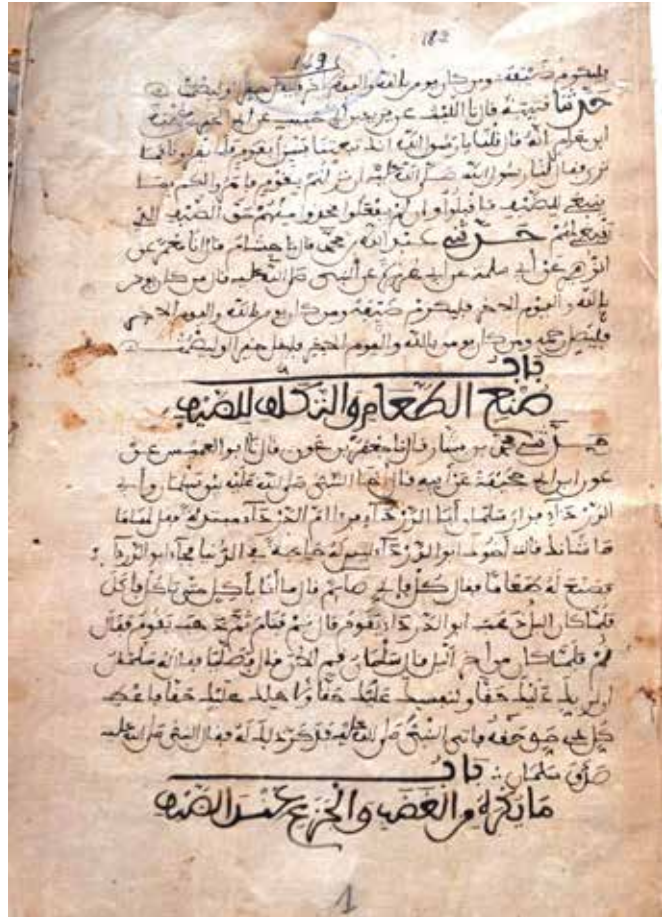 182
فليكرم ضيفه ومن كان يومن بالله واليوم الاخر فليقل خيرا او ليصمت
حدثنا قتيبة قال نا الليث عن يزيد بن أبي حبيب عن أبي الخير عن عقبة
ابن عامر أنه قال قلنا يا رسول الله انك تبعثنا فننزل بقوم فلا يقرونا فما
ترى فقال لنا رسول الله صلى الله عليه ان نزلتم بقوم فامروا لكم بما
ينبغي للضيف فاقبلوا وان لم يفعلوا فخذوا منهم حق الضيف الذي
ينبغي لهم حدثني عبد الله بن محمد قال نا هشام قال انا معمر عن
الزهري عن أبي سلمة عن أبي هريرة عن النبي صلى الله عليه قال من كان يومن
بالله واليوم الاخر فليكرم ضيفه ومن كان يومن بالله واليوم الاخر
فليصل رحمه ومن كان يومن بالله واليوم الاخر فليقل خيرا او ليصمت
باب
صنع الطعام والتكلف للضيف
حدثني محمد بن بشار قال نا جعفر بن عون قال نا أبو العميس عن
عون ابن ابي جحيفة عن أبيه قال آخى النبي صلى الله عليه بين سلمان وأبي
الدرداء فزار سلمان أبا الدرداء فرءا ام الدرداء متبذلة فقال لها ما
شانك قالت أخوك ابو الدرداء ليس له حاجة في الدنيا فجاء ابو الدرداء
فصنع له طعاما فقال كل فاني صايم قال ما أنا بآكل حتى تاكل فاكل
فلما كان الليل ذهب أبو الدرداء يقوم قال نم فنام ثم ذهب يقوم فقال
نم فلما كان من آخر الليل قال سلمان قم الان قال فصليا فقال له سلمان
ان لربك عليك حقا ولنفسك عليك حقا ولاهلك عليك حقا فاعط
كل ذي حق حقه فاتى النبي صلى الله عليه فذكر ذلك له فقال النبي صلى الله عليه
صدق سلمان باب
ما يكره من الغضب والجزع عند الضيف
1